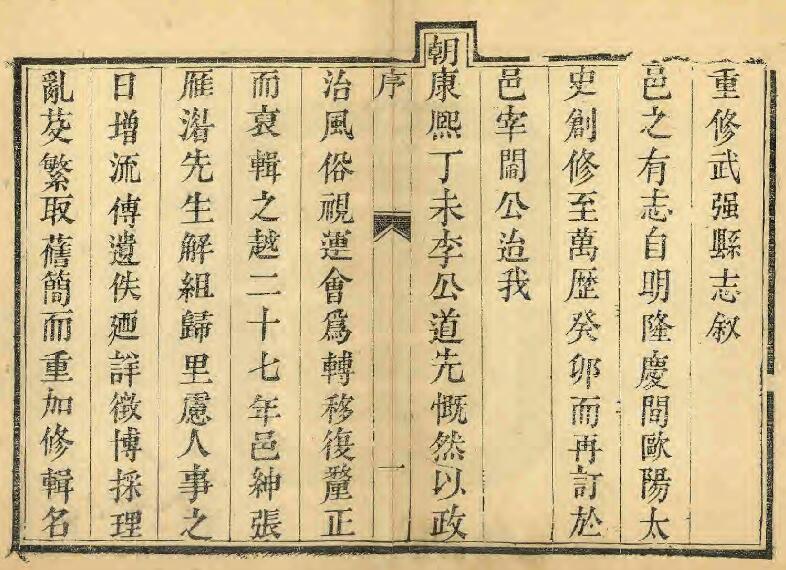 重修武强縣志叙
邑之有志自明隆慶間歐陽太
史創修至萬歷癸卯而再訂於
邑宰閻公迨我
朝康熙丁未李公道先慨然以政
序 一
治風俗視運會爲轉移復釐正
而裒輯之越二十七年邑紳張
雁湣先生解組歸里慮人事之
日增流傳遺佚廼詳徵博採理
亂芟繁取舊簡而重加修輯名